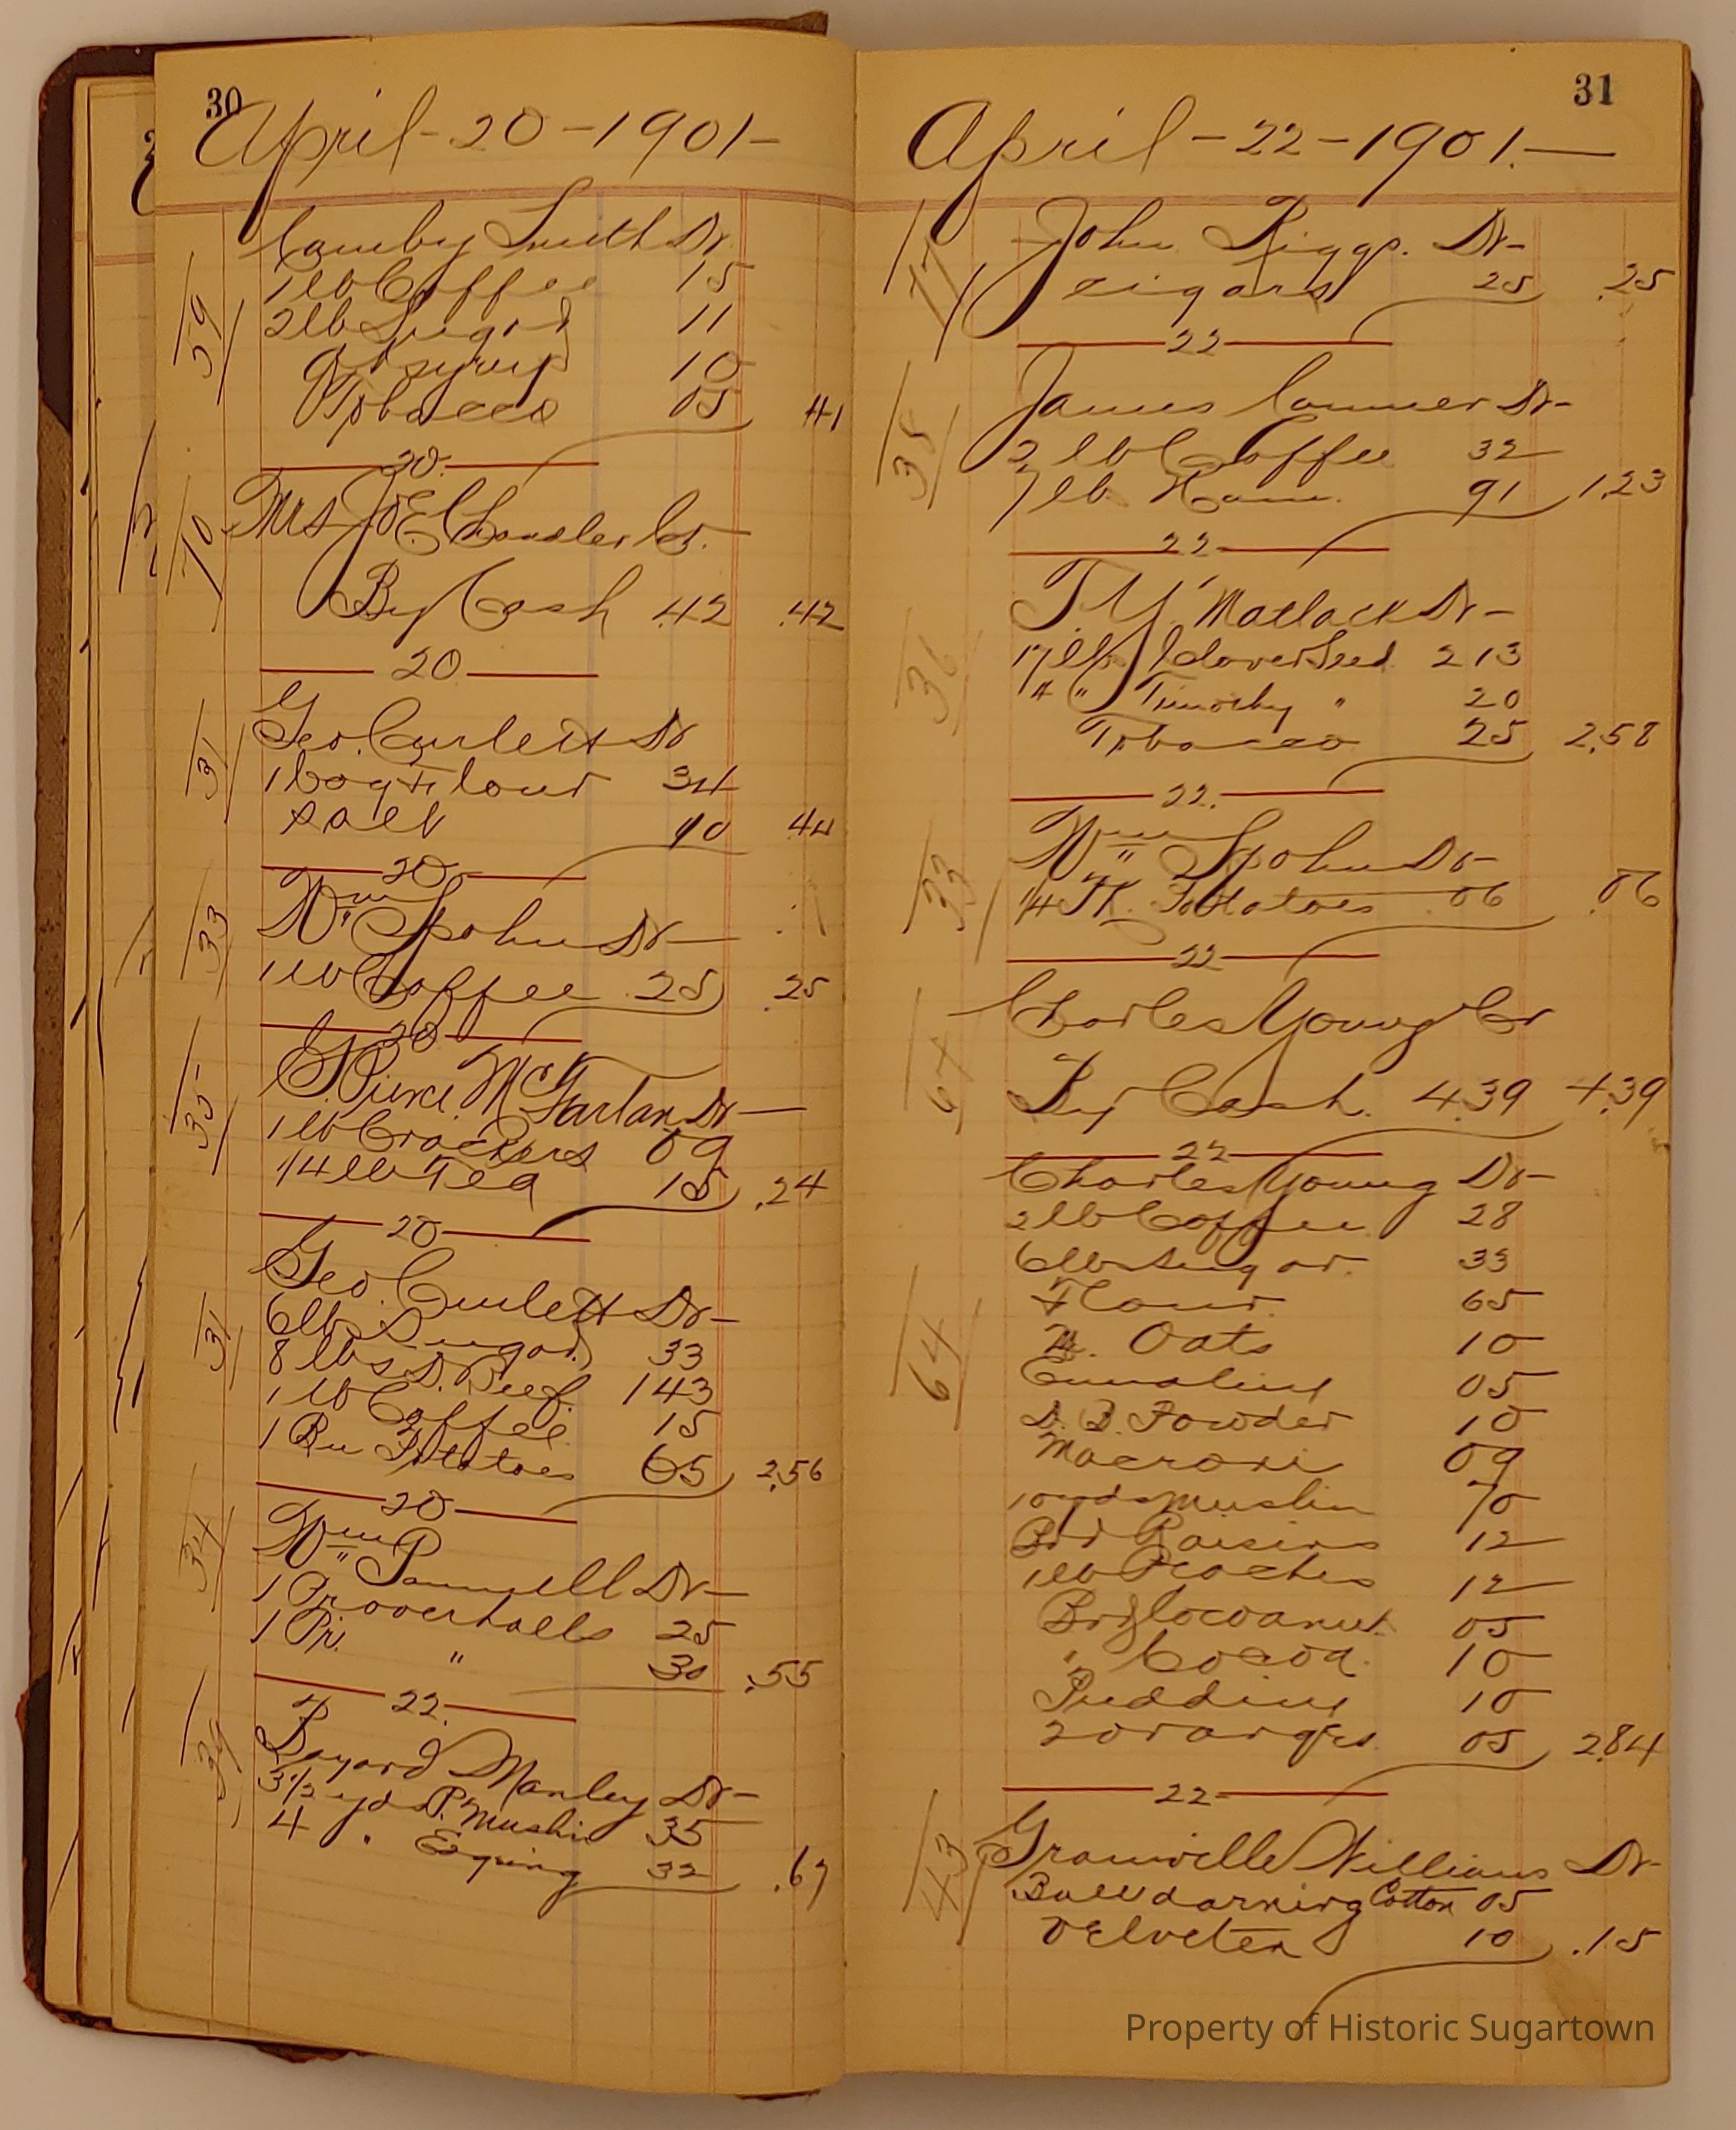 30
April - 20 - 1901 -
Camby Smith Dr
59
1 lb Coffee 15
2 lb Sugar 11
Qt syrup 10
Tobacco 05 41
20
70
Mrs Chandler Cr.
By Cash .42 .42
20
Geo. Curlett Dr
31
1 bag Flour 34
Salt 10 44
20
Wm Spohn Dr
33
1 lb Coffee .25 .25
20
G. Pierce McFarlan Dr
35
1 lb Crackers 09
1/4 lb Tea 15 .24
20
Geo. Curlett Dr -
31
6 lb Sugar 33
8 lbs D. Beef 143
1 lb Coffee 15
1 Bu Potatoes 65 2.56
20
34
Wm Pannell Dr -
1 Pr overhalls 25
1 Pr. " 30 .55
22.
39
Bayard Manley Dr -
3 1/2 yds P. Muslin 35
4 " 32 .67
31
April - 22 - 1901. -
77
John Riggs. Dr -
cigars 25 .25
22
James Conner Dr -
38
2 lb Coffee 32
7 lb. Ham. 91 1.23
22
T. Y. Matlack Dr -
36
17 lb Clover Seed. 213
4 " Timothy " 20
Tobacco 25 2.58
22.
Wm Spohn Dr -
33
1/4 Pk. Potatoes .06 .06
22
Charles Young Cr
67
By Cash. 4.39 4.39
22
Charles Young Dr -
2 lb Coffee 28
6 lb Sugar. 33
Flour. 65
64
Oats 10
05
Powder 10
Macroni 09
10 yds Muslin 70
Raisins 12
1 lb Peaches 12
Cocoanut 05
" Cocoa. 10
Pudding 10
2 oranges. 05 2.84
22
43
Granville Williams Dr -
Ball darning Cotton 05
Velveteen 10 .15
Property of Historic Sugartown